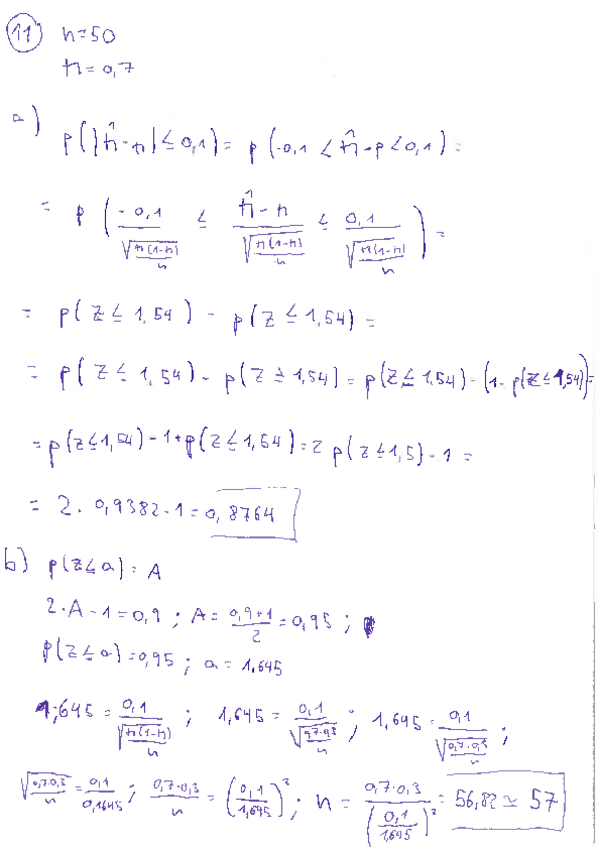 11 n=50
π=0,7
a) p(|π̂-π|≤0,1)= p(-0,1<π̂-p<0,1)=
= p( -0,1/√(π(1-π)/n) ≤ (π̂-π)/√(π(1-π)/n) ≤ 0,1/√(π(1-π)/n) )=
= p(Z≤1,54) - p(Z≤1,54)=
= p(Z≤1,54)-p(Z≥1,54)=p(Z≤1,54)-(1-p(Z≤1,54))=
=p(Z≤1,54)-1+p(Z≤1,54)=2p(Z≤1,5)-1=
= 2.0,9382-1=0,8764
b) p(Z≤a)=A
2·A-1=0,9; A=(0,9+1)/2=0,95;
p(Z≤a)=0,95; a=1.645
1,645=0,1/√(π(1-π)/n); 1,645=0,1/√(0,7·0,3/n); 1,645=0,1/√(0,7·0,3/n);
√(0,7·0,3/n)=0,1/0,1645; 0,7·0,3/n=(0,1/1,645)²; n=0,7·0,3/(0,1/1,645)²=56,82≃57